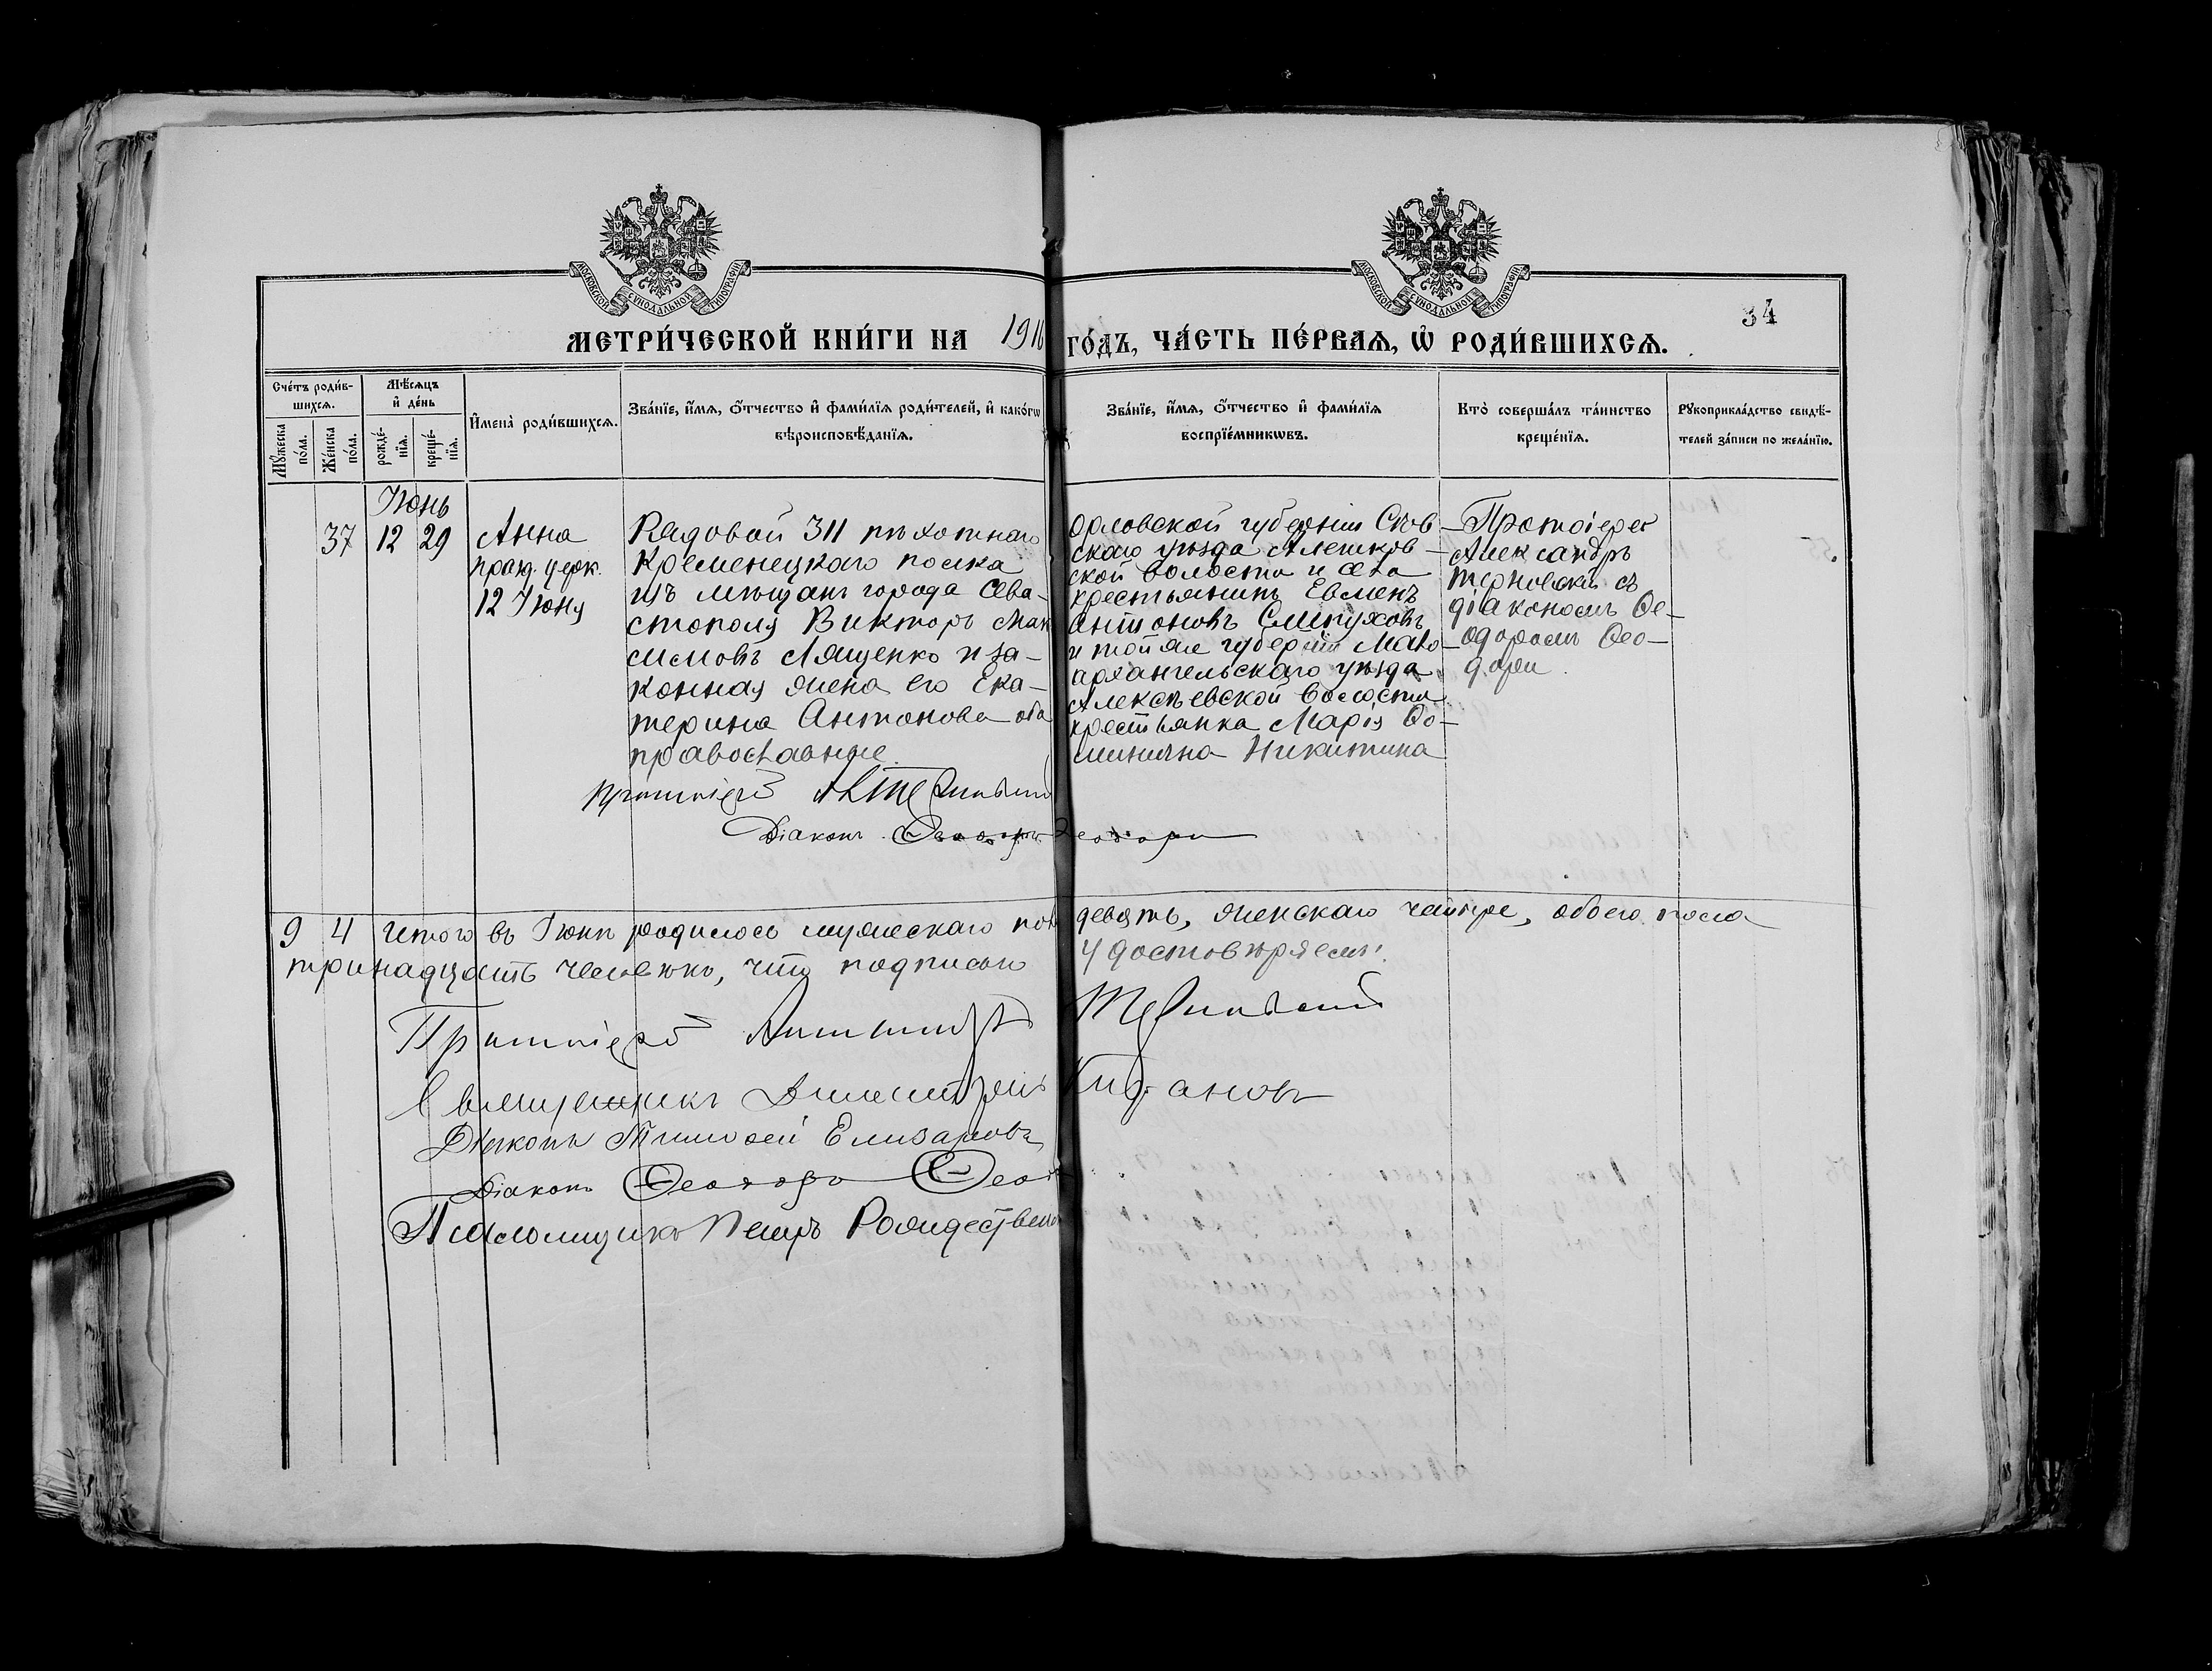 МОСКОВСКОЙ СѴНОДАЛЬНОЙ ТИПОГРАФІИ
МОСКОВСКОЙ СѴНОДАЛЬНОЙ ТИПОГРАФІИ
34
МЕТРИ́ЧЕСКОЙ КНИ́ГИ НА 1916 ГО́ДЪ, ЧА́СТЬ ПЕ́РВАѦ, Ѡ҆ РОДИ́ВШИХСѦ.
Сче́тъ роди́в-
шихсѧ.
Мꙋ́жеска
по́ла.
Же́нска
по́ла.
Мѣ́сѧцъ
и҆ де́нь
рожде́-
нїѧ.
креще́-
нїѧ.
И҆мена̀ роди́вшихсѧ.
Зва́нїе, и҆́мѧ, ѻ҆́тчество и҆ фами́лїѧ роди́телей, и҆ како́гѡ
вѣроисповѣ́данїѧ.
Зва́нїе, и҆́мѧ, ѻ҆́тчество и҆ фами́лїѧ
воспрїе́мникѡвъ.
Кто̀ соверша́лъ та́инство
креще́нїѧ.
Рꙋкоприкла́дство свидѣ́-
телей за́писи по жела́нїю.
Іюнь
37 12 29
Анна
празд. церк.
12 Іюня
Рядовой 311 пѣхотнаго
Кременецкаго полка
изъ мѣщанъ города Сева-
стополя Викторъ Мак
симовъ Лященко и за-
конная жена его Ека-
терина Антонова оба
православные.
Орловской губерніи Сѣв-
скаго уѣзда Алешков-
ской волости и села
крестьянинъ Евменъ
Антоновъ
и той же губерніи Мало-
архангельскаго уѣзда
Алексѣевской волости
крестьянка Марія Ѳо-
минична Никитина
Протоіерей
Александръ
Терновскій съ
діакономъ Ѳе-
одоромъ Ѳео-
дори.
Протоіерей А. Терновскій
Діаконъ Ѳеодоръ Ѳеодори
9 4 Итого въ Іюнѣ родилось мужескаго пола девять, женскаго четыре, обоего пола
тринадцать человѣкъ, что подписью удостовѣряемъ:
Протоіерей Александръ Терновскій
Священникъ Димитрій
Діаконъ Тимоѳей Елизаровъ
Діаконъ Ѳеодоръ Ѳеод
Псаломщикъ Петръ Рождествен